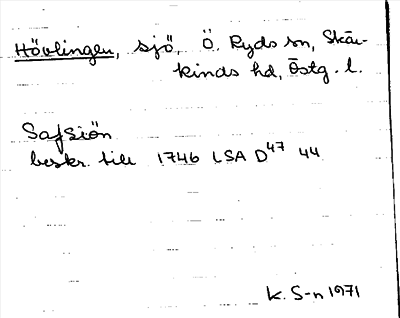 Hövlingen, sjö, Ö. Ryds sn, Skär-
kinds hd, Östg. l.
Safsiön
beskr. till 1746 LSA D47 44
K. S-n 1971